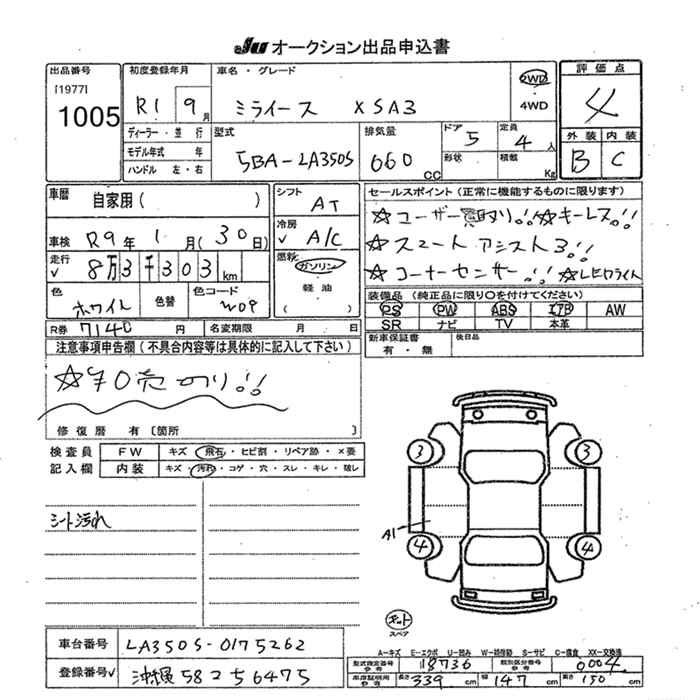 JU オークション出品申込書
出品番号
[1977]
1005
初度登録年月
R1 9月
車名・グレード
ミライース XSA3
2WD
4WD
評価点
4
外装 内装
B C
ディーラー・並行
モデル年式 年
ハンドル 左・右
型式
5BA-LA350S
排気量
660 CC
ドア 5
形状
定員 4人
積載 Kg
車歴 自家用( )
車検 R9年1月(30日)
走行 8万3千303km
色 ホワイト
色替
色コード W09
R券 7140円
名変期限 月 日
シフト AT
冷房 A/C
燃料 ガソリン
軽油
( )
セールスポイント(正常に機能するものに限ります)
☆ユーザー買取り!!☆キーレス!!
☆スマートアシスト3!!
☆コーナーセンサー!!☆LEDライト
装備品(純正品に限り〇を付けてください)
PS PW ABS エアB AW
SR ナビ TV 本革
新車保証書
有・無
後日品
注意事項申告欄(不具合内容等は具体的に記入して下さい)
☆¥0売のり!!
修復歴 有〔箇所
検査員 FW キズ・飛石・ヒビ割・リペア跡・×要
記入欄 内装 キズ・汚れ・コゲ・穴・スレ・キレ・破レ
シート汚れ
3 3
A1
4 4
キット
スペア
車台番号 LA350S-0175262
登録番号 沖縄 582 56475
A-キズ E-エクボ U-凹み W-補修跡 S-サビ C-腐食 XX-交換済
型式指定番号 参考 18736
類別区分番号 参考 0004
車庫証明用 参考 長さ 339cm 幅 147cm 高さ 150cm